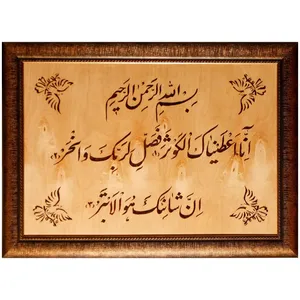 بسم الله الرحمن الرحیم
انا اعطیناک الکوثر (۱) فصل لربک وانحر (۲)
ان شانئک هو الابتر (۳)